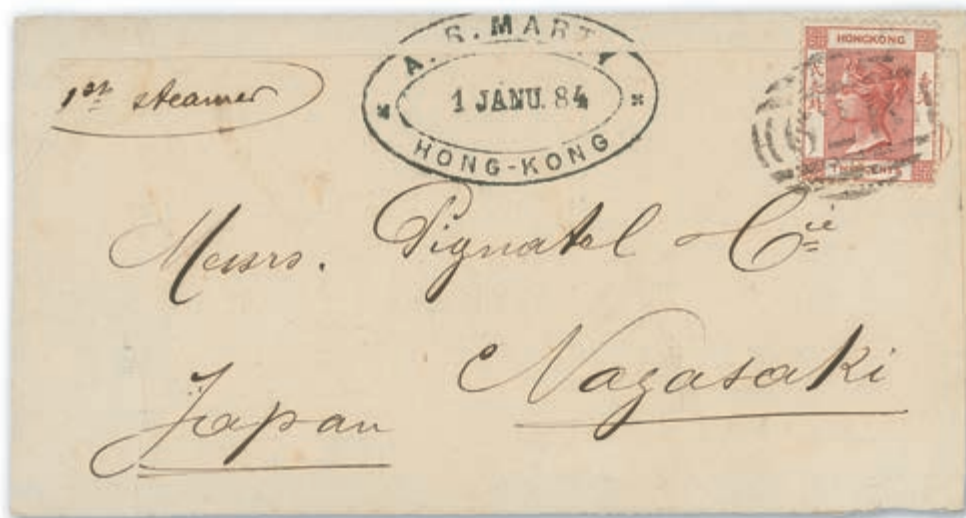 1st steamer
A. R. MARTY
1 JANU. 84
HONG-KONG
HONGKONG
CENTS
Messrs. Pignatel & Cie
Nagasaki
Japan